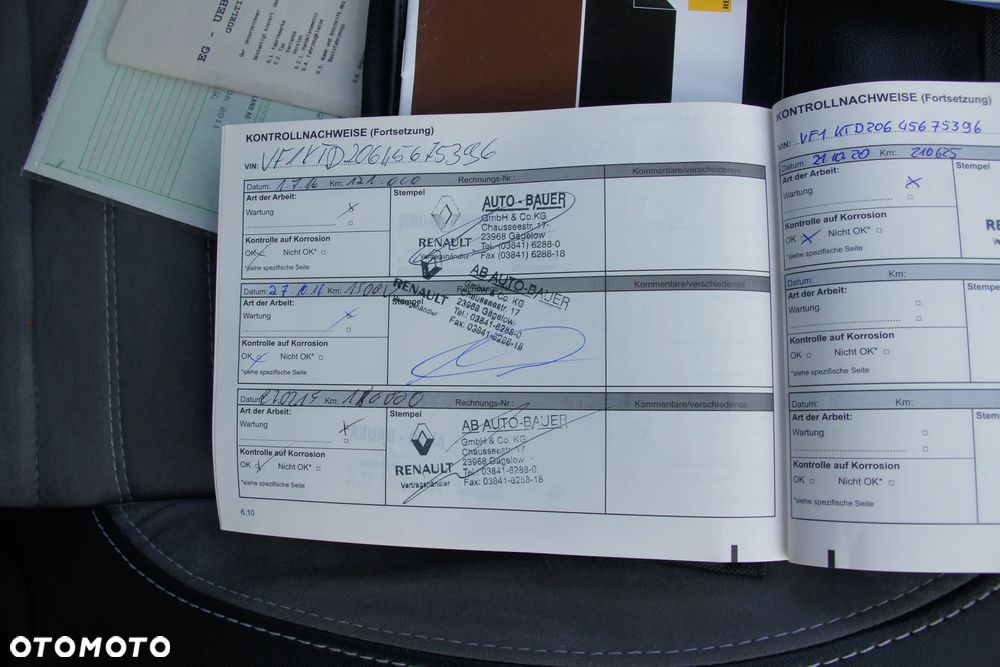 EG - UEB
GUELTI
Der Unterzeichner
0.1. Fabrikmarke
0.2. Typ
Variante
Version
KONTROLLNACHWEISE (Fortsetzung)
VIN: VF1KTD20645675396
Datum: 1.7.16 Km: 121.000 Rechnungs-Nr.: Kommentare/verschiedenes
Art der Arbeit:
Wartung
Stempel
Kontrolle auf Korrosion
OK Nicht OK*
*siehe spezifische Seite
RENAULT
Vertragshändler
AUTO - BAUER
GmbH & Co.KG
Chausseestr. 17
23968 Gägelow
Tel. (03841) 6288-0
Fax (03841) 6288-18
Datum: 27.10.16 Km: Kommentare/verschiedenes
Art der Arbeit:
Wartung
Stempel
Kontrolle auf Korrosion
OK Nicht OK*
*siehe spezifische Seite
RENAULT
Vertragshändler
AB AUTO-BAUER
GmbH & Co. KG
Chausseestr. 17
23968 Gägelow
Tel.: 03841-6288-0
Fax: 03841-6288-18
Datum: Km: 180000 Rechnungs-Nr.: Kommentare/verschiedenes
Art der Arbeit:
Wartung
Stempel
Kontrolle auf Korrosion
OK Nicht OK*
*siehe spezifische Seite
RENAULT
Vertragshändler
AB AUTO-BAUER
GmbH & Co. KG
Chausseestr. 17
23968 Gägelow
Tel.: 03841-6288-0
Fax: 03841-6288-18
6.10
KONTROLLNACHWEISE (Fortsetzung)
VIN: VF1KTD20645675396
Datum: 21.10.20 Km: 210625
Art der Arbeit:
Wartung
Stempel
Kontrolle auf Korrosion
OK Nicht OK*
*siehe spezifische Seite
Datum: Km:
Art der Arbeit:
Wartung
Stempel
Kontrolle auf Korrosion
OK Nicht OK*
*siehe spezifische Seite
Datum: Km:
Art der Arbeit:
Wartung
Stempel
Kontrolle auf Korrosion
OK Nicht OK*
*siehe spezifische Seite
OTOMOTO